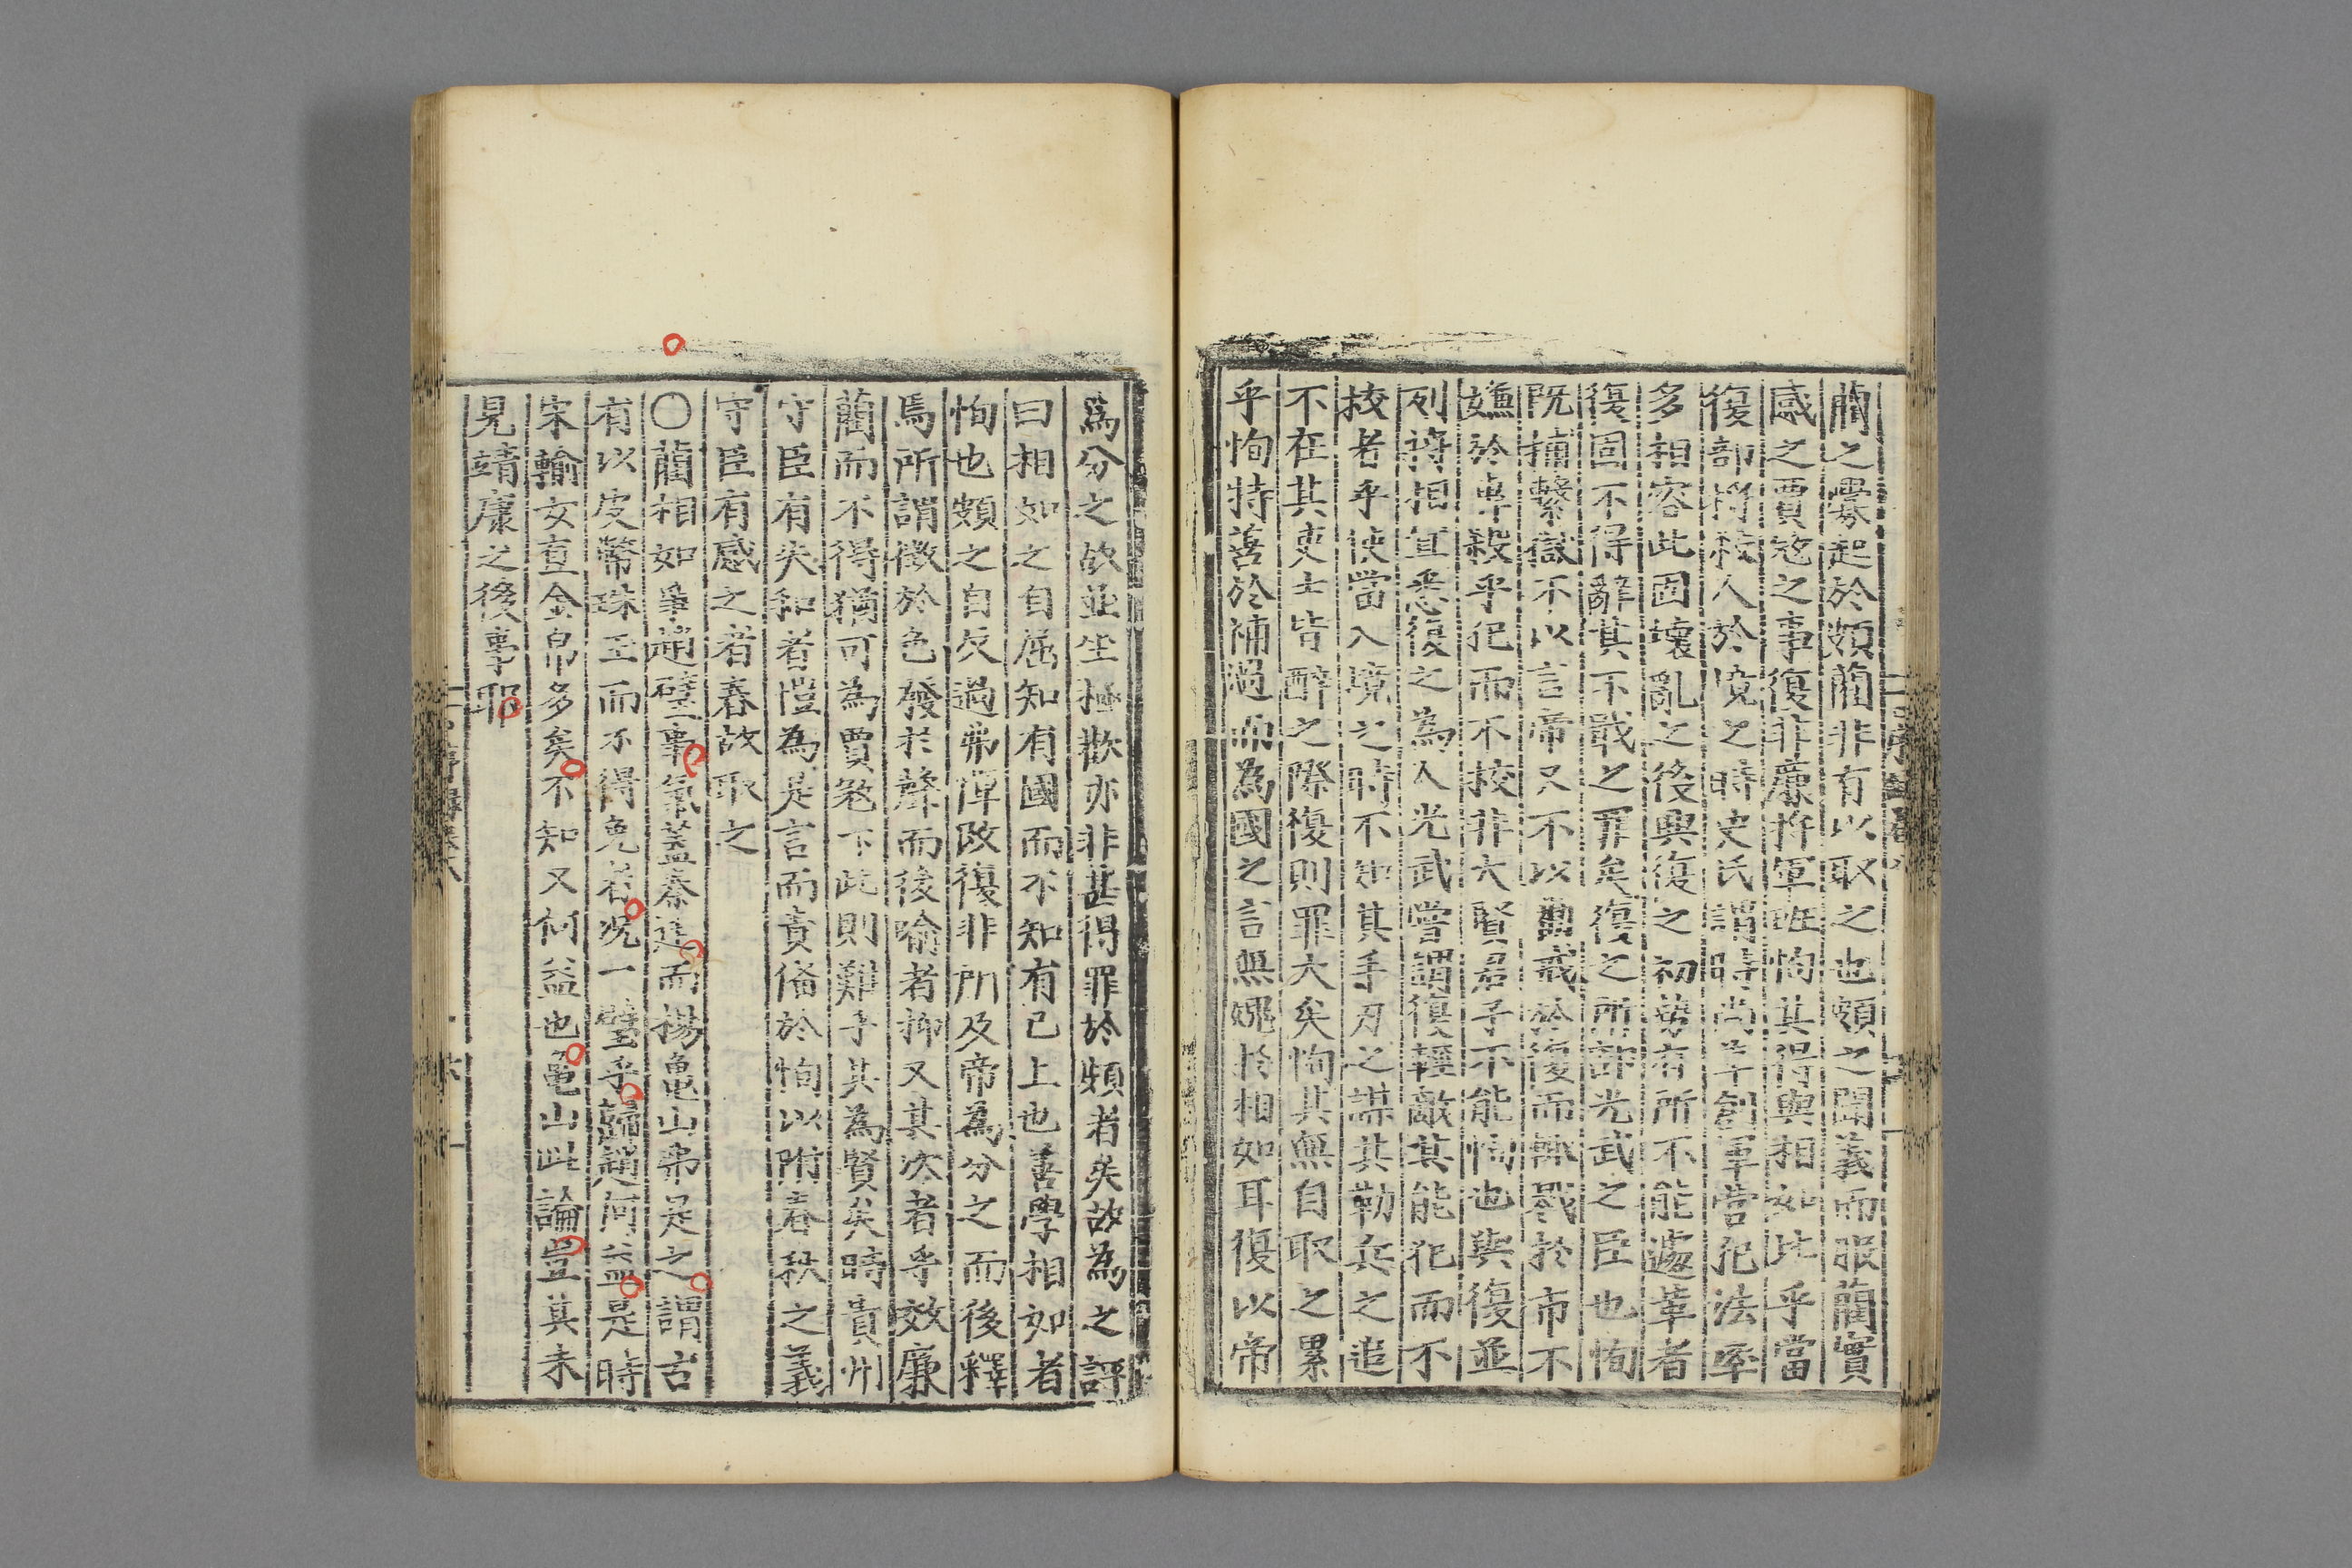 藺之舋起於頗藺非有以取之也頗之聞義而服藺實
感之賈寇之事復非廉將軍班恂其得與相如比乎當
復部將殺人於境之時史氏謂時尚草創軍營犯法率
多相容此固壞亂之後興復之初勢有所不能遽革者
復固不得辭其不戢之罪矣復之所部光武之臣也恂
既捕繫獄不以言帝又不以勸戒於復而輒戮於市不
嫌於專殺乎犯而不校非大賢君子不能恂也與復並
列將相宜悉復之為人光武嘗謂復輕敵其能犯而不
校者乎使當入境之時不知其手刃之謀其勒兵之追
不在其吏士皆醉之際復則罪大矣恂其無自取之累
乎恂特善於補過而為國之言無媿於相如耳復以帝
為分之故並坐極歡亦非甚得罪於頗者矣故為之評
曰相如之自屈知有國而不知有己上也善學相如者
恂也頗之自反過弗憚改復非所及帝為分之而後釋
焉所謂徵於色發於聲而後喻者抑又其次者乎效廉
藺而不得猶可為賈寇下此則難乎其為賢矣時貴州
守臣有失和者愷為是言而責偹於恂以附春秋之義
守臣有感之者春故取之
〇藺相如爭趙璧事氣蓋秦廷而楊龜山弗是之謂古
有以皮幣珠玉而不得免者况一璧乎歸趙何益是時
宋輸女直金帛多矣不知又何益也龜山此論豈其未
見靖康之後事耶